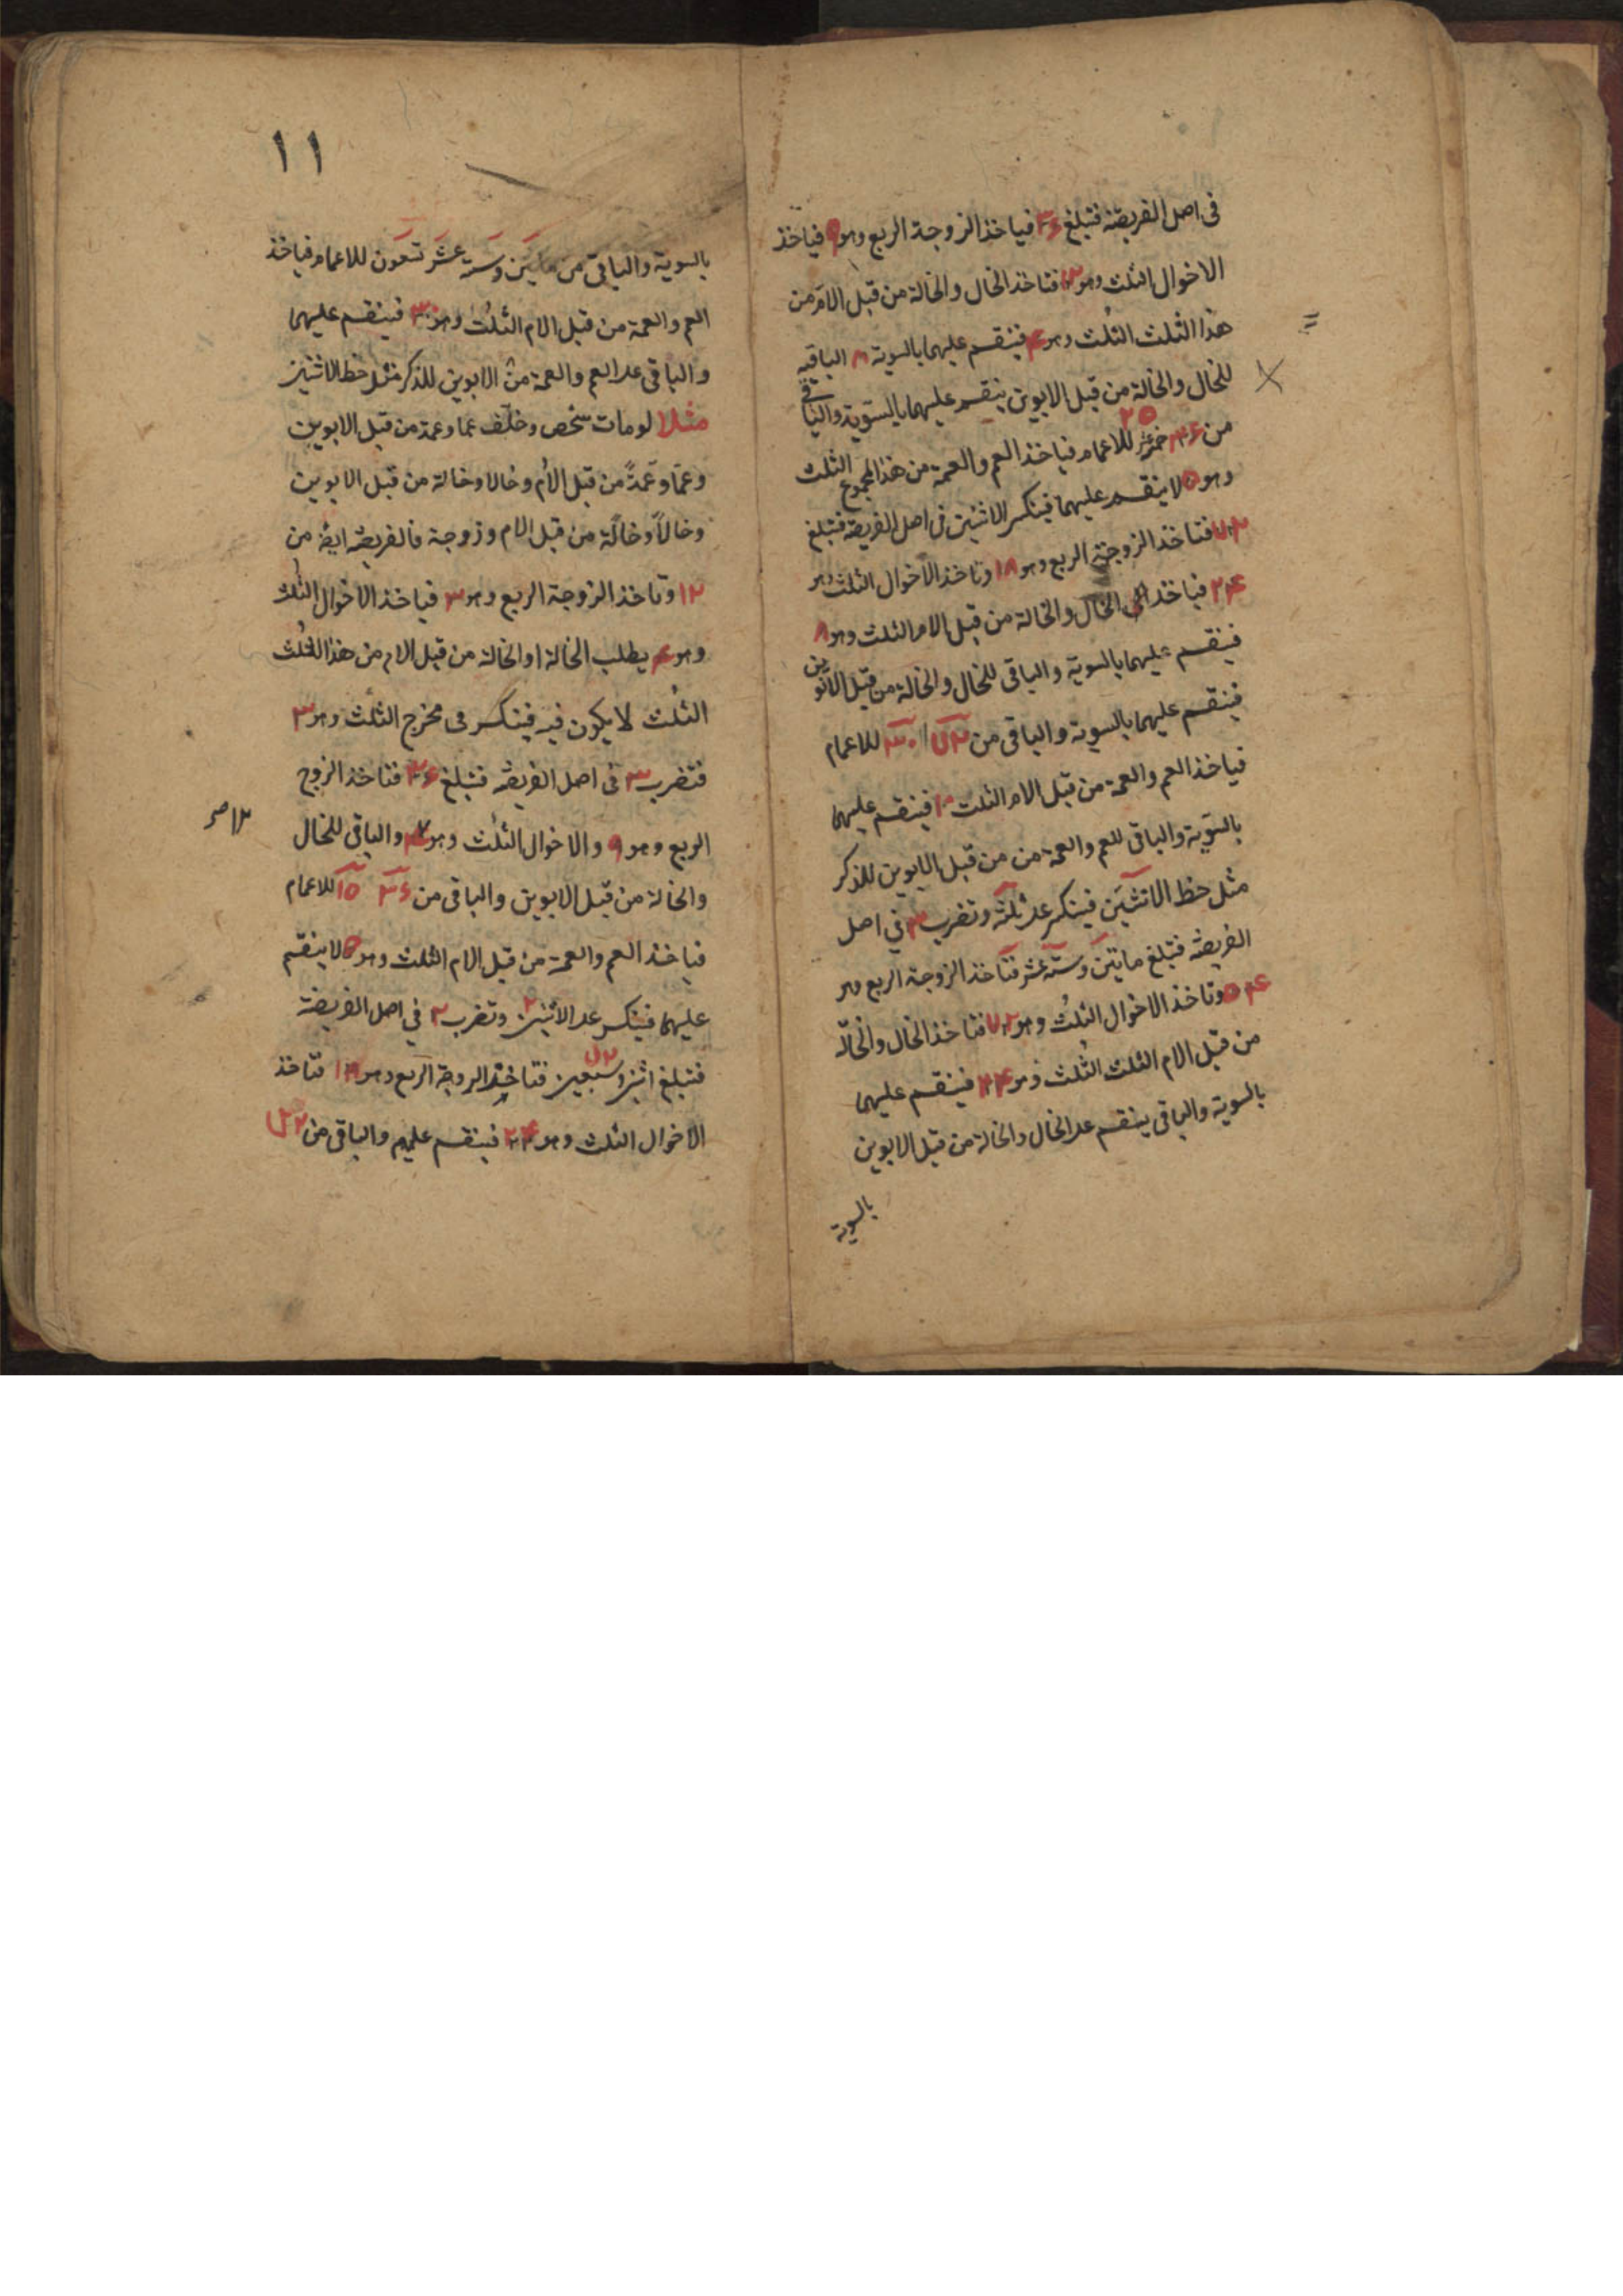 فى اصل الفريضة فتبلغ ٣٦ فياخذ الزوجة الربع وهو ٩ فياخذ
الاخوال الثلث وهو ١٢ فتاخذ الخال والخالة من قبل الام من
هذا الثلث الثلث وهو ۴ فينقسم عليهما بالسوية ٨ الباقية
للخال والخالة من قبل الابوين ينقسم عليهما بالسوية والباقى
٢٥
من ٣٦ للاعمام فياخذ العم والعمة من هذا المجموع الثلث
وهو ٥ لا ينقسم عليهما فينكسر الاثنين فى اصل الفريضة فتبلغ
٧٢ فتاخذ الزوجة الربع وهو ١٨ وتاخذ الاخوال الثلث وهو
٢۴ فياخذ الخال والخالة من قبل الام الثلث وهو ٨
فينقسم عليهما بالسوية والباقى للخال والخالة من قبل الابوين
فينقسم عليهما بالسوية والباقى من ٧٢ ٣٠ للاعمام
فياخذ العم والعمة من قبل الام الثلث ١٠ فينقسم عليهما
بالسوية والباقى للعم والعمة من من قبل الابوين للذكر
مثل حظ الانثيين فينكسر على ثلثة وتضرب ٣ في اصل
الفريضة فتبلغ مايتين وستة عشر فتاخذ الزوجة الربع وهو
٥۴ وتاخذ الاخوال الثلث وهو ٧٢ فتاخذ الخال والخالة
من قبل الام الثلث الثلث وهو ٢۴ فينقسم عليهما
بالسوية والباقى ينقسم على الخال والخالة من قبل الابوين
بالسوية
١١
بالسوية والباقى من مايتين وستة عشر تسعون للاعمام فياخذ
العم والعمة من قبل الام الثلث وهو ٣٠ فينقسم عليهما
والباقى على العم والعمة من الابوين للذكر مثل حظ الانثيين
مثلا لو مات شخص وخلف عما وعمة من قبل الابوين
وعما وعمة من قبل الام وخالا وخالة من قبل الابوين
وخالا وخالة من قبل الام وزوجة فالفريضة ايضا من
١٢ وتاخذ الزوجة الربع وهو ٣ فياخذ الاخوال الثلث
وهو ۴ يطلب الخالة او الخالة من قبل الام من هذا الثلث
الثلث لا يكون فيه فينكسر فى مخرج الثلث وهو ٣
فتضرب ٣ فى اصل الفريضة فتبلغ ٣٦ فتاخذ الزوج
الربع وهو ٩ والاخوال الثلث وهو والباقى للخال
والخالة من قبل الابوين والباقى من ٣٦ ١٥ للاعمام
فياخذ العم والعمة من قبل الام الثلث وهو ٥ لا ينقسم
عليهما فينكسر على الاثنين وتضرب ٢ في اصل الفريضة
فتبلغ اثنين وسبعين ٧٢ فتاخذ الزوجة الربع وهو ١٨ فتاخذ
الاخوال الثلث وهو ٢۴ فينقسم عليهم والباقى من ٧٢